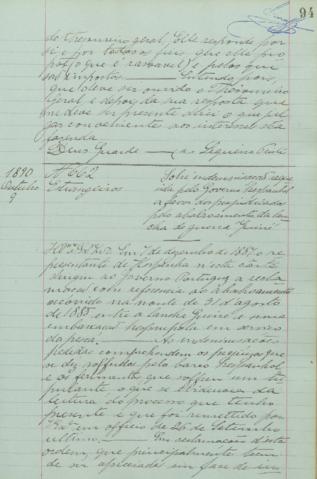 94
do thesoureiro geral, Elle responde por
si e por todos os fieis, que elle pro
põe (o que é rasoavel) e pelos que
são impostos. Entendo, pois,
que deve ser ouvido o Thesoureiro
Geral e depois da sua resposta que
me deve ser presente direi o que jul
gar conveniente aos interesses da
fazenda.
Deus Guarde — a) Sequeira Pinto
1890
Outubro
9
Nº 662
Estrangeiros
Sobre indemnisação reque
rida pelo Governo Hespanhol
a favor dos prejudicados
pelo abalroamento da lan
cha de guerra
Illmo e Exmo Snr. Em 7 de dezembro de 1887 o re
presentante de Hespanha n'esta côrte
dirigiu ao Governo Portuguez a recla
mação com referencia ao abalroamento
occorrido na noute de 31 d'agosto
de 1885 entre a lancha e uma
embarcação hespanhola em serviço
da pesca. As indemnisações
pedidas comprehendem os prejuizos que
se diz soffridos pelo barco hespanhol
e os ferimentos que soffreu um tri
pulante o que se deduz da
leitura do processo que tenho
presente e que foi remettido por
V. Exa em officio de 26 de Setembro
ultimo. Em reclamação d'esta
ordem, que principalmente tem
de ser apreciada em face de um